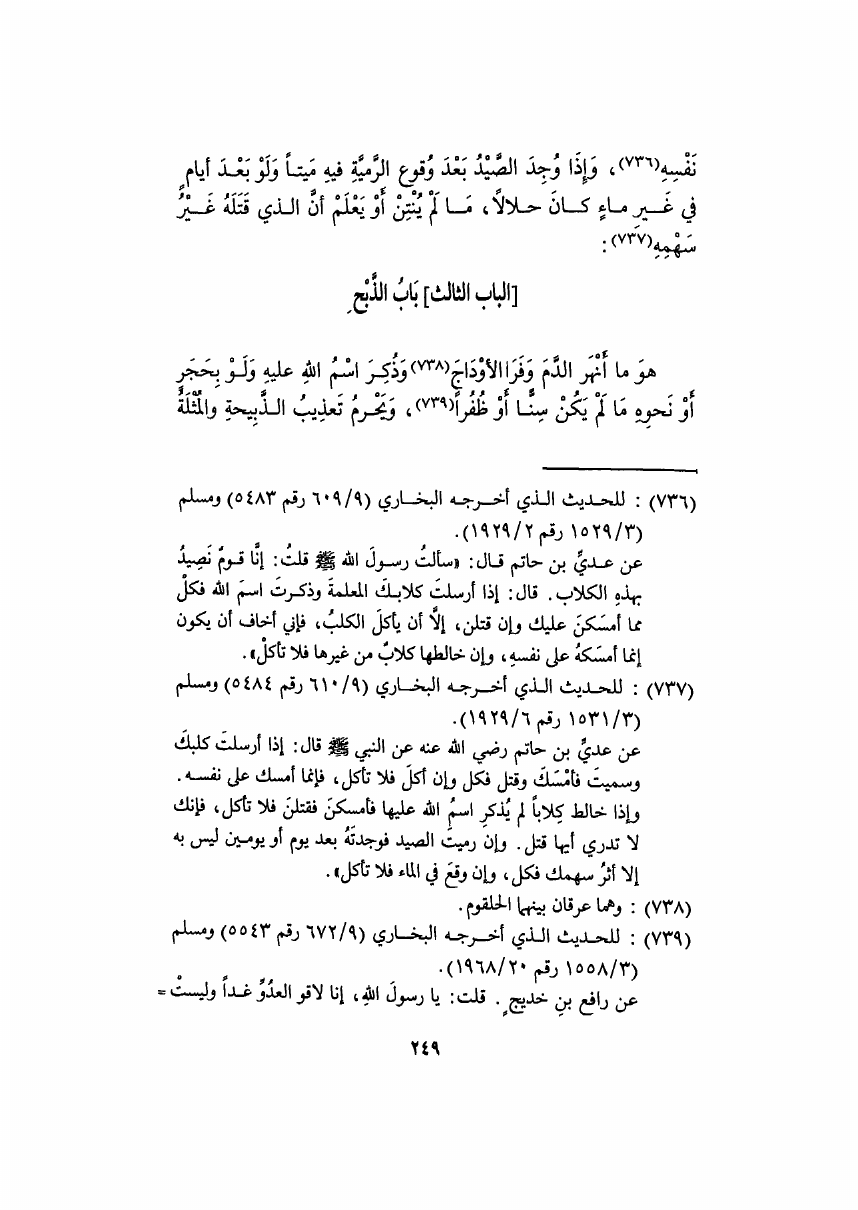 نَفْسِهِ(٧٣٦)، وَإِذَا وُجِدَ الصَّيْدُ بَعْدَ وُقوعِ الرَّمِيَّةِ فيهِ مَيتاً وَلَوْ بَعْدَ أيامٍ
في غَيرِ ماءٍ كانَ حلالاً، مَا لَمْ يُنْتِنْ أَوْ يَعْلَمْ أنَّ الذي قَتَلَهُ غَيْرُ
سَهْمِهِ(٧٣٧):
[الباب الثالث] بَابُ الذَّبْحِ
هوَ ما أَنْهَر الدَّمَ وَفَرَا الأوْدَاجَ(٧٣٨) وَذُكِرَ اسْمُ اللهِ عليهِ وَلَوْ بِحَجَرٍ
أَوْ نَحوِهِ مَا لَمْ يَكُنْ سِنًّا أَوْ ظُفُراً(٧٣٩)، وَيَحْرمُ تَعذِيبُ الذَّبِيحةِ والمُثْلَةُ
(٧٣٦) : للحديث الذي أخرجه البخاري (٦٠٩/٩ رقم ٥٤٨٣) ومسلم
(١٥٢٩/٣ رقم ١٩٢٩/٢).
عن عديِّ بن حاتم قال: «سألتُ رسولَ الله ﷺ قلتُ: إنَّا قومٌ نَصِيدُ
بهذهِ الكلاب. قال: إذا أرسلتَ كلابكَ المعلمةَ وذكرتَ اسمَ الله فكلْ
مما أمسَكنَ عليك وإن قتلن، إلَّا أن يأكلَ الكلبُ، فإني أخاف أن يكون
إنما أمسَكهُ على نفسهِ، وإن خالطها كلابٌ من غيرها فلا تأكلْ».
(٧٣٧) : للحديث الذي أخرجه البخاري (٦١٠/٩ رقم ٥٤٨٤) ومسلم
(١٥٣١/٣ رقم ١٩٢٩/٦).
عن عديِّ بن حاتم رضي الله عنه عن النبي ﷺ قال: إذا أرسلتَ كلبكَ
وسميتَ فأمْسَكَ وقتل فكل وإن أكلَ فلا تأكل، فإنما أمسك على نفسه.
وإذا خالط كِلاباً لم يُذكرِ اسمُ الله عليها فأمسكنَ فقتلنَ فلا تأكل، فإنك
لا تدري أيها قتل. وإن رميتَ الصيد فوجدتَهُ بعد يوم أو يومين ليس به
إلا أثرُ سهمك فكل، وإن وقعَ في الماء فلا تأكل».
(٧٣٨) : وهما عرقان بينهما الحلقوم.
(٧٣٩) : للحديث الذي أخرجه البخاري (٦٧٢/٩ رقم ٥٥٤٣) ومسلم
(١٥٥٨/٣ رقم ١٩٦٨/٢٠).
عن رافع بنِ خديجٍ. قلت: يا رسولَ اللهِ، إنا لاقو العدُوِّ غداً وليستْ =
٢٤٩